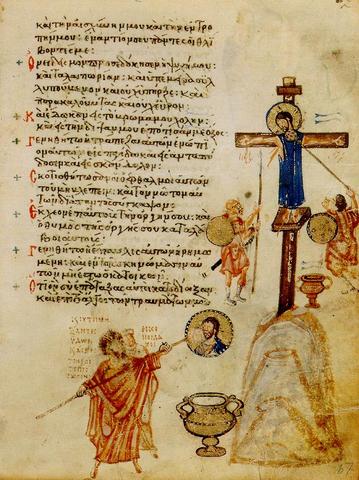 καὶ τὴν αἰσχύνην μου καὶ τὴν ἐντρο
πήν μου· ἐναντίον σου πάντες οἱ θλί
βοντές με:
Ὀνειδισμὸν προσεδόκησεν ἡ ψυχή μου·
καὶ ταλαιπωρίαν· καὶ ὑπέμεινα συλ
λυπούμενον καὶ οὐχ ὑπῆρξε· καὶ
παρακαλοῦντας καὶ οὐχ εὗρον:
Καὶ ἔδωκαν εἰς τὸ βρῶμά μου χολὴν·
καὶ εἰς τὴν δίψαν μου ἐπότισάν με ὄξος:
Γενηθήτω ἡ τράπεζα αὐτῶν ἐνώπι
ον αὐτῶν εἰς παγίδα καὶ εἰς ἀνταπό
δοσιν καὶ εἰς σκάνδαλον:
Σκοτισθήτωσαν οἱ ὀφθαλμοὶ αὐτῶν
τοῦ μὴ βλέπειν· καὶ τὸν νῶτον αὐ
τῶν διὰ παντὸς σύγκαμψον:
Ἔκχεον ἐπ' αὐτοὺς τὴν ὀργήν σου· καὶ
ὁ θυμὸς τῆς ὀργῆς σου καταλά
βοι αὐτούς:
Γενηθήτω ἡ ἔπαυλις αὐτῶν ἠρημω
μένη· καὶ ἐν τοῖς σκηνώμασιν αὐ
τῶν μὴ ἔστω ὁ κατοικῶν:
Ὅτι ὃν σὺ ἐπάταξας αὐτοὶ κατεδίωξαν·
καὶ ἐπὶ τὸ ἄλγος τῶν τραυμάτων μου